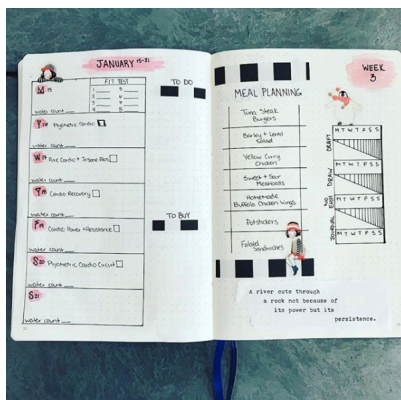 JANUARY 15-21
FIT TEST
M 15
1 5
2 6
3 7
4 8
water count
T 16 Plyometric Cardio
water count
W 17 Pure Cardio + Intense Abs
water count
T 18 Cardio Recovery
water count
F 19 Cardio Power + Resistance
water count
S 20 Plyometric Cardio Circuit
water count
S 21
water count
TO DO
TO BUY
MEAL PLANNING
Tuna Steak
Burgers
Barley + Lentil
Salad
Yellow Curry
Chicken
Sweet + Sour
Meatballs
Homemade
Buffalo Chicken Wings
Potstickers
Falafel
Sandwiches
WEEK
3
DRAFT
M T W T F S S
DRAW
M T W T F S S
M T W T F S S
JOURNAL
M T W T F S S
A river cuts through
a rock not because of
its power but its
persistence.